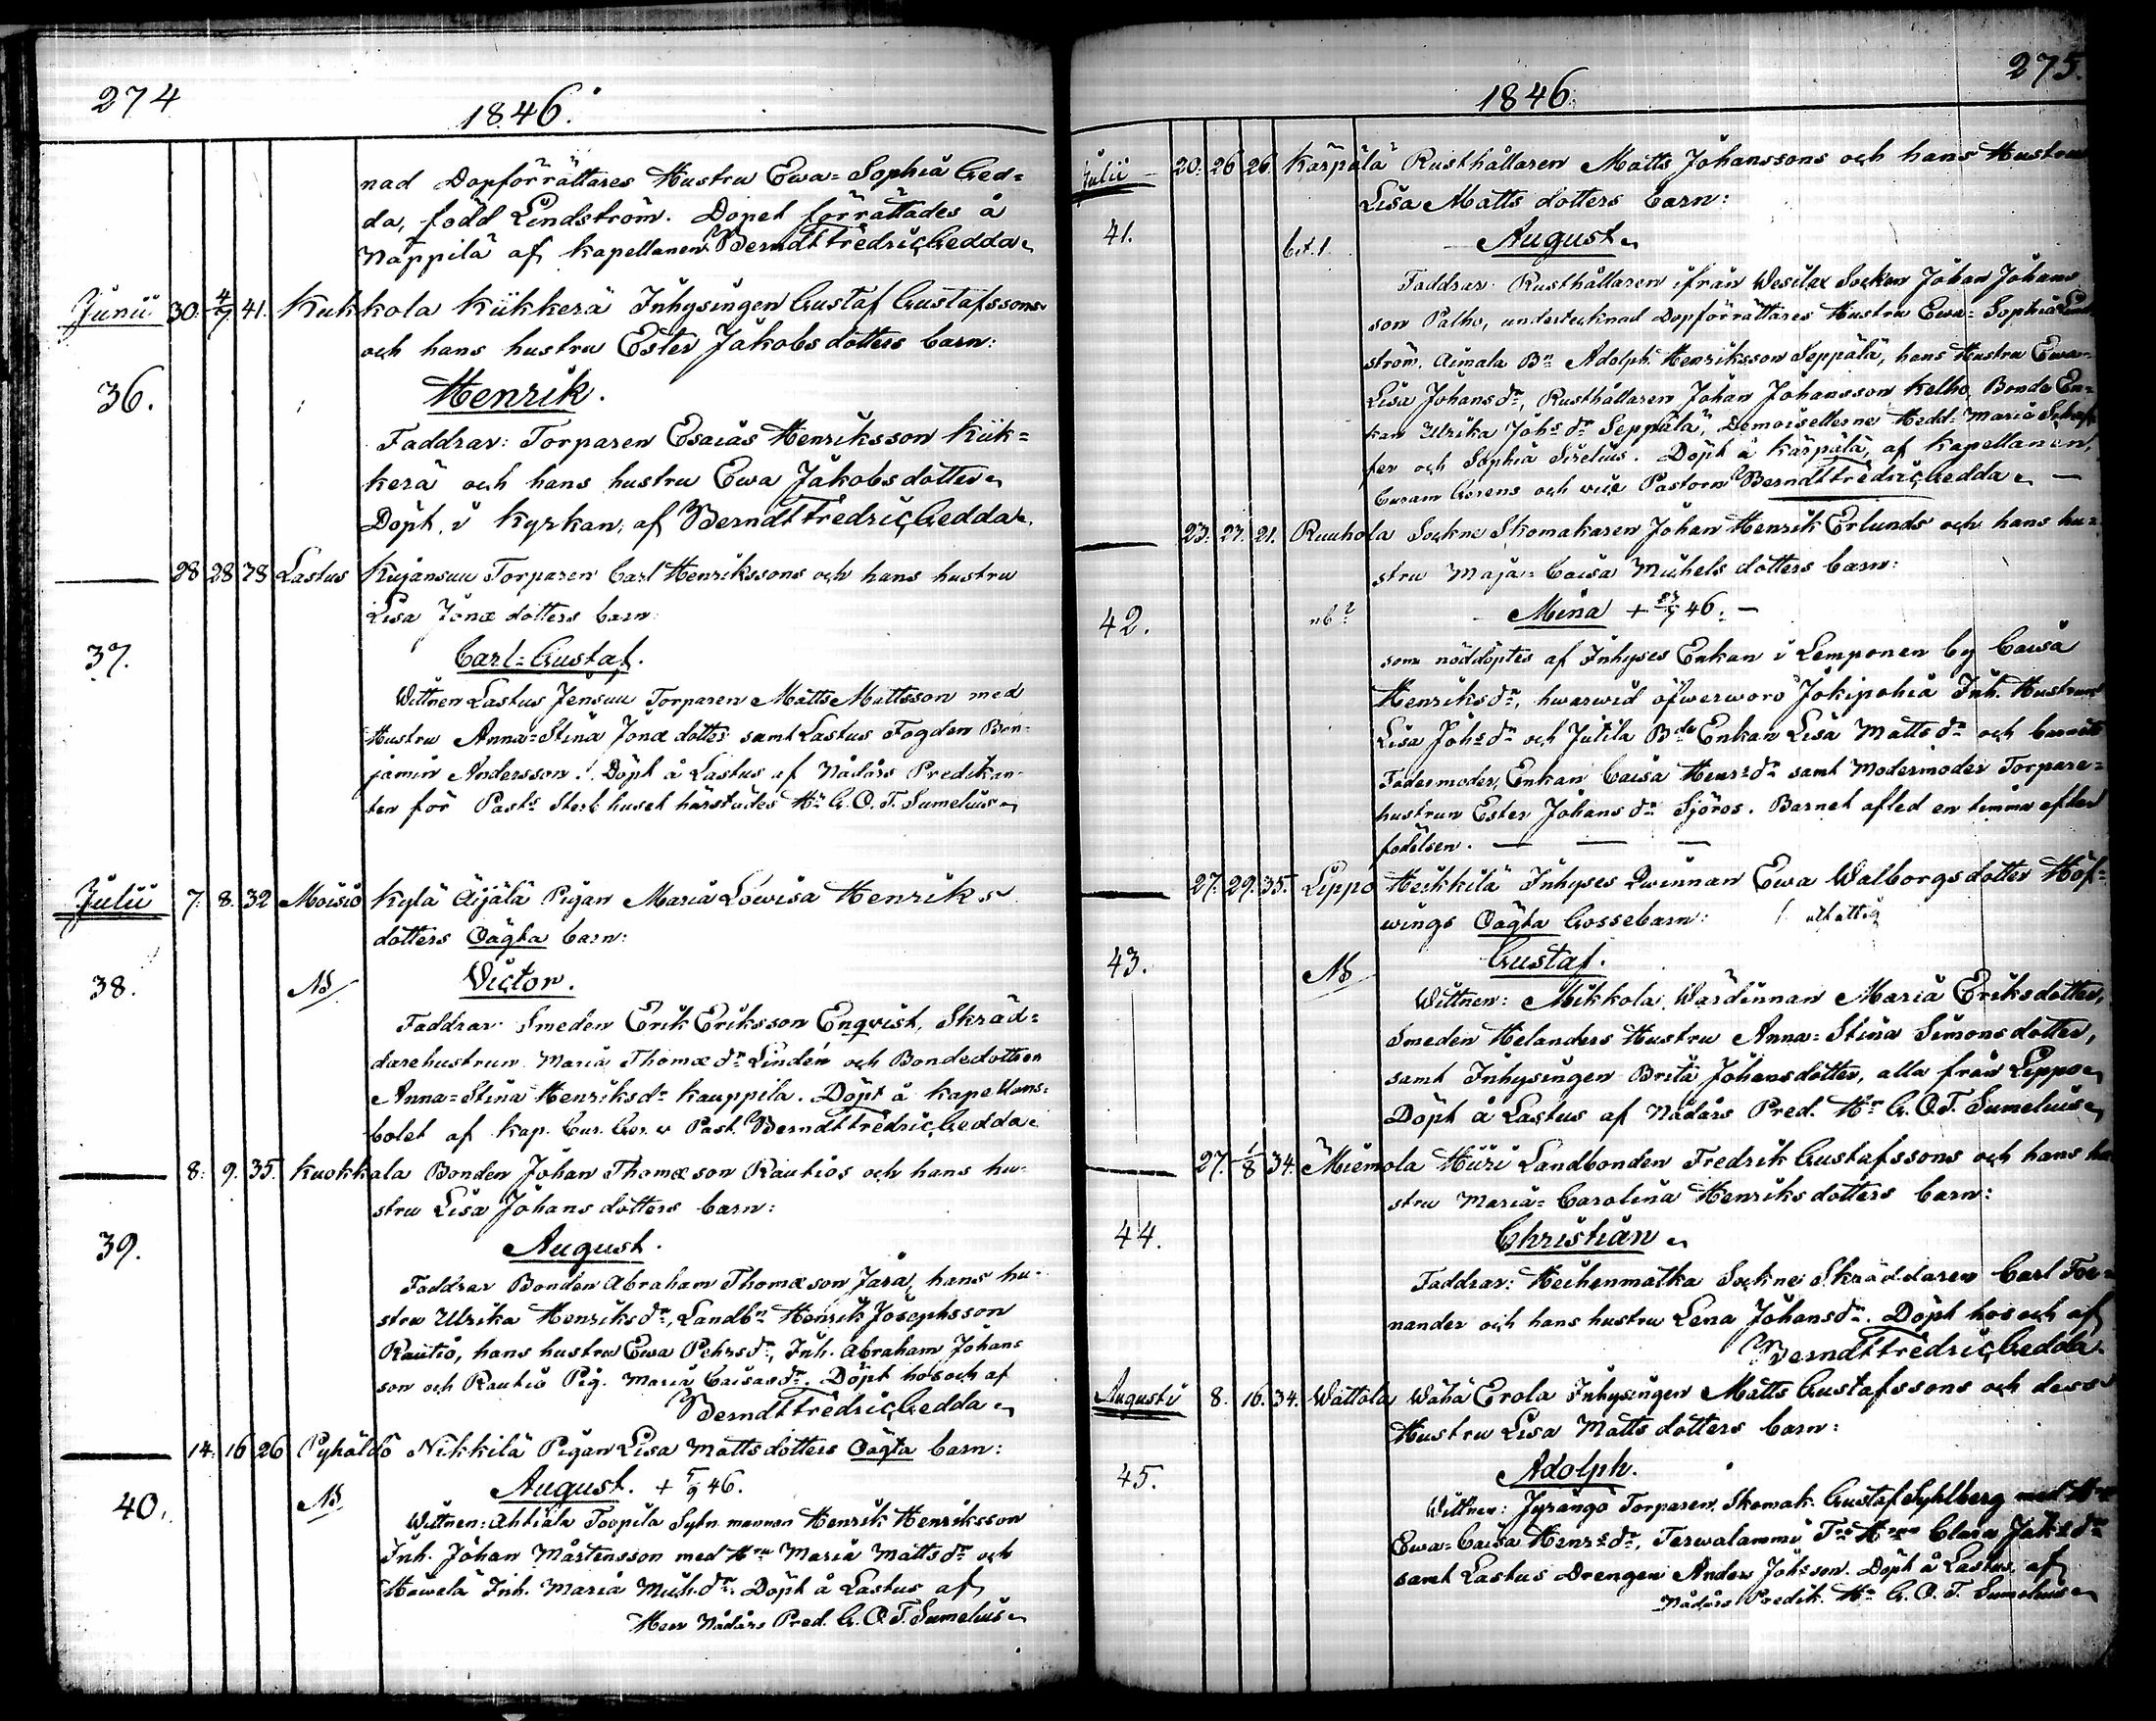 274
1846.
nad Dopförrättares Hustru Ewa=Sophia Ged=
da, född Lindström. Dopet förrättades å
Näppilä af Kapellanen Berndt Fredric Gedda
Junii 30. 4/7 41. Kukkola Kiikkerä Inhysingen Gustaf Gustafssons
och hans hustru Ester Jakobs dotters barn:
36. Henrik.
Faddrar: Torparen Esaias Henriksson Kiik=
kerä och hans hustru Ewa Jakobsdotter
Döpt i Kyrkan, af Berndt Fredric Gedda.
28 28 38 Lastus Kujansuu Torparen Carl Henrikssons och hans hustru
Lisa Jonæ dotters barn
37. Carl=Gustaf.
Wittnen Lastus Jensuu Torparen Matts Mattsson med
Hustru Anna=Stina Jonæ dotter samt Lastus Fogden Ben-
jamin Andersson. Döpt å Lastus af Nådårs Predikan-
ten för Past:s Sterbhuset härstädes Hr G. O. T. Sumelius
Julii 7. 8. 32 Moisio Kylä Äijälä Pigan Maria Lowisa Henriks
dotters Oägta barn:
38. NB Victor.
Faddrar Smeden Erik Eriksson Enqvist, Skräd=
darehustrun Maria Thomæ dr Lindén och Bondedottren
Anna=Stina Henriksdr Kauppila. Döpt å Kapellans=
bolet af Kap. Cur. Ger. v Past. Berndt Fredric Gedda
8. 9. 35. Kuokkala Bonden Johan Thomæson Rautios och hans hu-
stru Lisa Johans dotters barn:
39. August.
Faddrar Bonden Abraham Thomæson Jara, hans hu-
stru Ulrika Henriksdr, Landbn Henrik Josephsson
Rautio, hans hustru Ewa Pehrsdr, Inh. Abraham Johans
son och Rautio Pig. Maria Caisasdr. Döpt hos och af
Berndt Fredric Gedda
14. 16 26 Pyhältö Nikkilä Pigan Lisa Mattsdotters Oägta barn:
40. NB August. + 5/9 46.
Wittnen: Ahtiala Toopila Sytn. mannen Henrik Henriksson
Inh. Johan Mårtensson med Hru Maria Mattsdr och
Hawela Inh. Maria Mich.dr. Döpt å Lastus af
Herr Nådårs Pred. G. O. T. Sumelius
275.
1846.
Julii 20. 26 26. Kärpälä Rusthållaren Matts Johanssons och hans Hustru
Lisa Matts dotters barn:
41. August
Faddrar. Rusthållaren ifrån Wesilax Socken Johan Johans
son Palho, undertecknad Dopförrättares Hustru Ewa=Sophia Lind
ström. Aimala Bn Adolph Henriksson Seppälä, hans Hustru Ewa=
Lisa Johansdr, Rusthållaren Johan Johansson Kelho Bonde En=
kan Ulrika Johs dr Seppälä, Demoisellerne Hedd: Maria
fer och Sophia Sirelius. Döpt å Kärpälä, af Kapellanen,
Curam Gerens och vice Pastorn Berndt Fredric Gedda
23. 27. 21. Ruuhola Sockne Skomakaren Johan Henrik Erlunds och hans hu=
stru Maja=Caisa Michels dotters barn:
42. Mina + 23/7 46.
som nöddöptes af Inhyses Enkan i Lemponen by Caisa
Henriksdr, hwarwid öfwerworo Jokipohia Inh. Hustrun
Lisa Johs dr och Jutila Bde Enkan Lisa Matts dr och barnets
Fadermoder, Enkan Caisa Henrs dr samt Modermoder Torpare=
hustrun Ester Johans dr Sjöros. Barnet afled en timma efter
födelsen.
27. 29. 35. Lippo Heikkilä Inhyses Qwinnan Ewa Walborgsdotter Höf=
wings Oägta Gossebarn:
43. NB Gustaf.
Wittnen: Mikkola Wärdinnan Maria Eriksdotter,
Smeden Helanders Hustru Anna=Stina Simons dotter,
samt Inhysingen Brita Johansdotter, alla från Lippo
Döpt å Lastus af Nådårs Pred. Hr G. O. T. Sumelius
27. 1/8 34. Miemola Hiiri Landbonden Fredrik Gustafssons och hans hu
stru Maria=Carolina Henriksdotters barn:
44. Christian
Faddrar: Heikenmatka Sockne Skräddaren Carl For=
nander och hans hustru Lena Johansdr. Döpt hos och af
Berndt Fredric Gedda
Augusti 8. 16. 34. Wättola Wähä Erola Inhysingen Matts Gustafssons och dess
Hustru Lisa Matts dotters barn:
45. Adolph.
Wittnen: Jyrängö Torparen, Skomak. Gustaf Syhlberg med
Ewa=Caisa Henrs dr, Terwalammi Clara Jaks dr
samt Lastus Drengen Anders Johsson. Döpt å Lastus, af
Nådårs Predik. Hr G. O. T. Sumelius